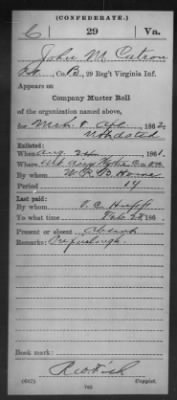 (CONFEDERATE.)
C 29 Va.
John M
Co. B, 29 Reg't Virginia Inf.
Appears on
Company Muster Roll
of the organization named above,
for Mch & Apl, 1862.
Undated
Enlisted:
When Aug, 186 1.
Where
By whom W. R. B. Horne
Period 14
Last paid:
By whom
To what time Feb. 28, 186 .
Present or absent Absent
Remarks: On furlough.
Book mark:
(642) Copyist.